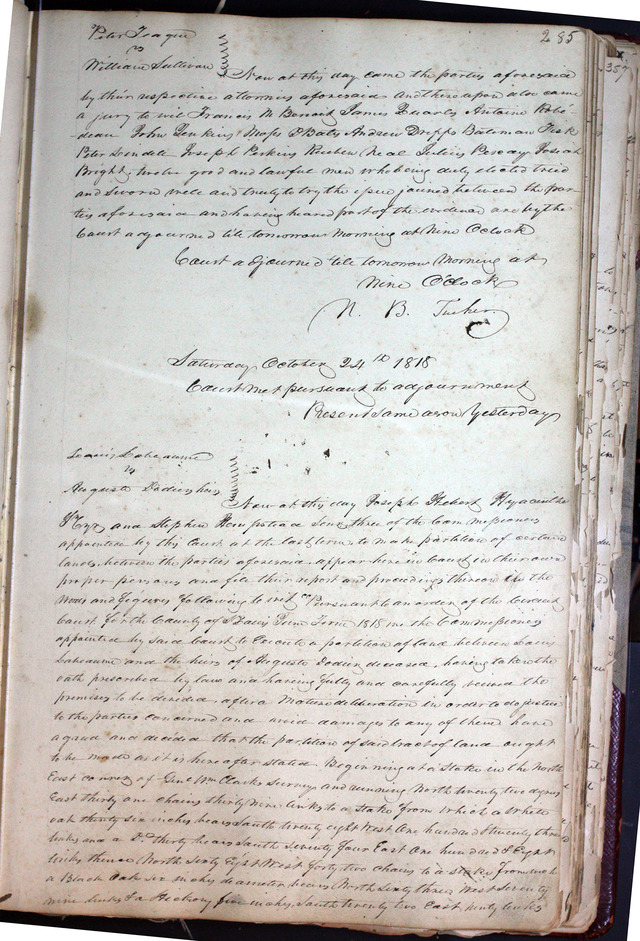 285
Peter Teague
vs
William Sullivan
Now at this day came the parties aforesaid
by their respective attornies aforesaid and thereupon also came
a jury to wit Francis M Benoit James Quarles Antoine Robi-
deau John Jenkins Moses Bates Andrew Dripps Bateman Fisk
Peter Joseph Perkins Reuben Neal Julius Josiah
Bright, twelve good and lawful men who being duly elected tried
and sworn well and truly to try the issue joined between the par-
ties aforesaid and having heard part of the evidence are by the
Court adjourned till tomorrow morning at Nine OClock
Court adjourned till tomorrow morning at
Nine O'Clock
N. B. Tucker
Saturday October 24th 1818
Court met pursuant to adjournment
Present same as on Yesterday
Louis Labeaume
vs
Auguste heirs
Now at this day Joseph Hebert Hyacinthe
and Stephen Hempstead Senr three of the Commissioners
appointed by this Court at the last term to make partition of certain
lands between the parties aforesaid appear here in Court in their own
proper persons and file their report and proceedings thereon in the
words and figures following to wit "Pursuant to an order of the Circuit
Court for the County of St Louis June Term 1818 we the Commissioners
appointed by said Court to Execute a partition of land between Louis
Labeaume and the heirs of Auguste deceased, having taken the
oath prescribed by law and having fully and carefully viewed the
premises to be divided, after a Mature deliberation in order to do justice
to the parties concerned and avoid damages to any of them have
agreed and decided that the partition of said tract of land ought
to be made as it is hereafter stated. Beginning at a stake in the North
East corner of Genl Wm Clarks survey and running North twenty two degrees
East thirty one chains thirty nine links to a stake from which a White
oak thirty six inches bears South twenty eight West One hundred & twenty three
links and a Do thirty bears South Seventy four East One hundred & Eight
links thence North Sixty Eight West forty two chains to a stake from which
a Black Oak six inches diameter bears North Sixty three West Seventy
nine links & a Hickory five inches South twenty two East ninty links